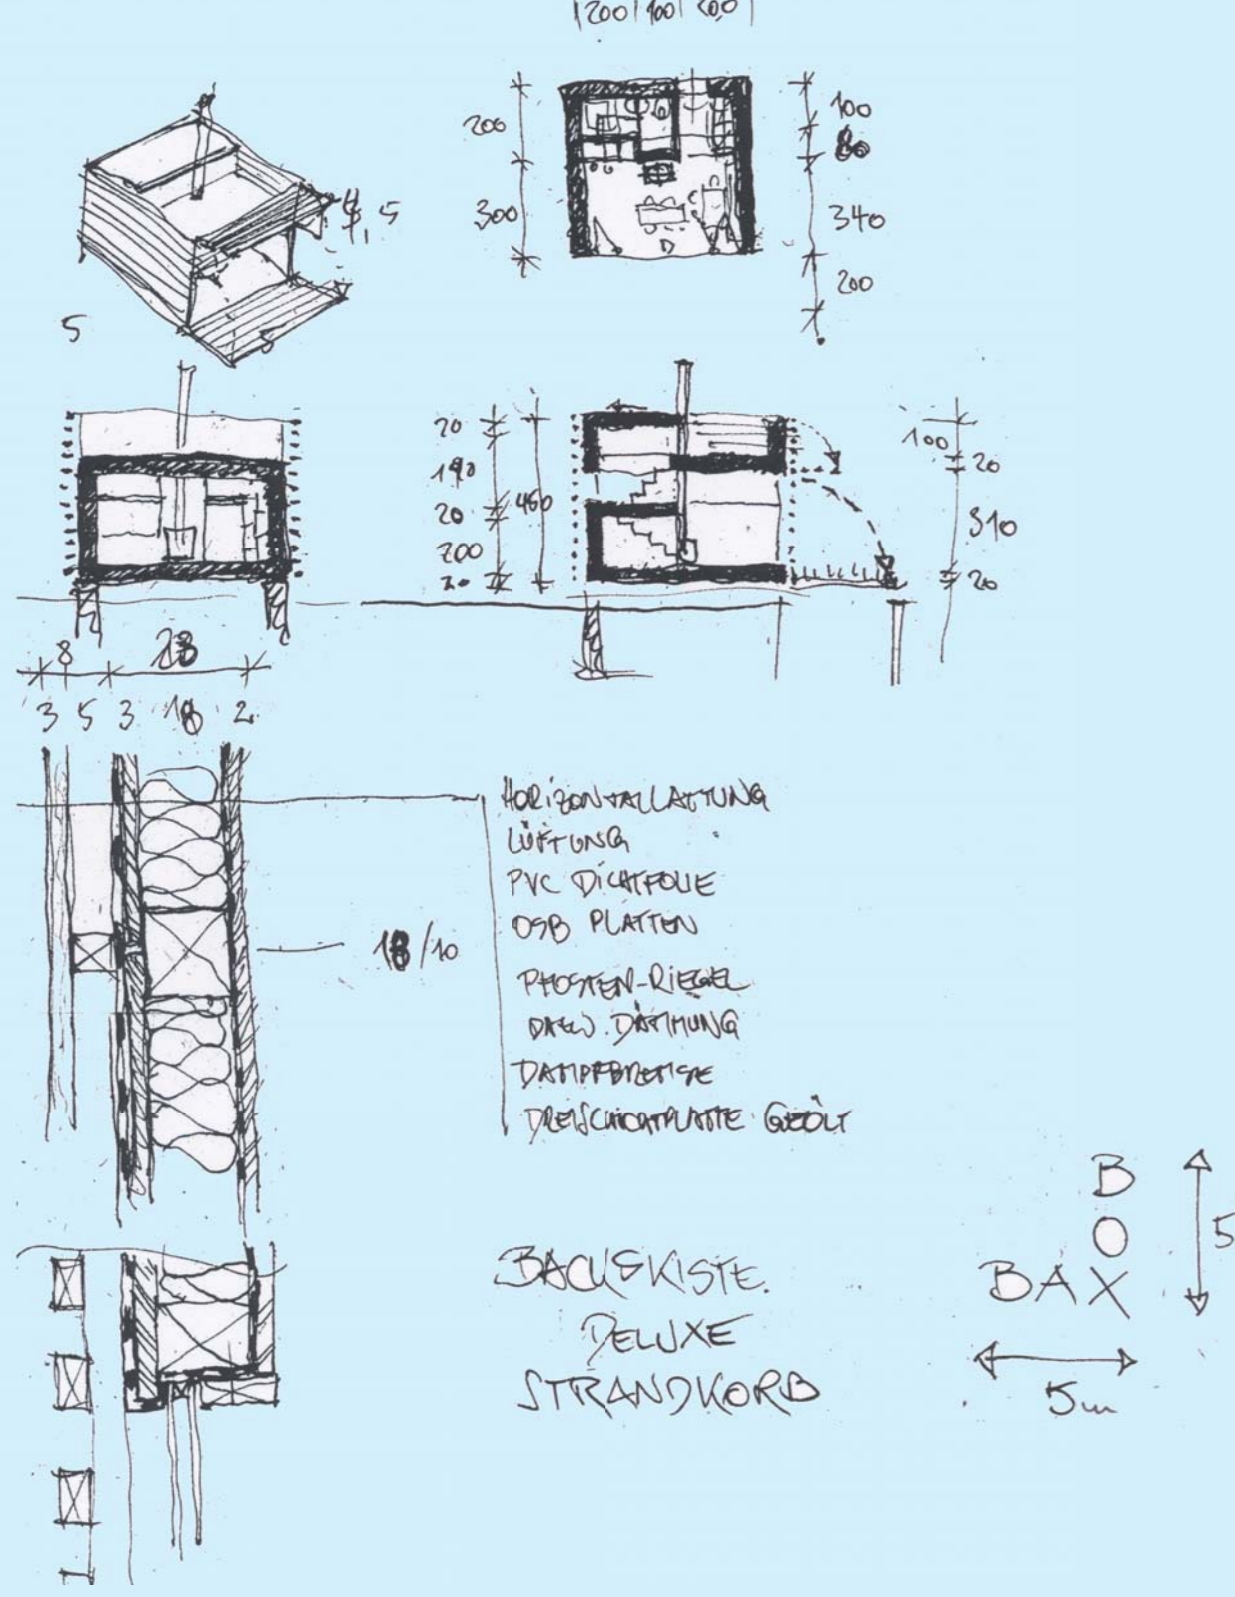 200 100 200
200
300
100
80
340
200
4,5
5
5
20
190
20
200
20
460
100
20
310
20
8 28
3 5 3 18 2
HORIZONTALLATTUNG
LÜFTUNG
PVC DICHTFOLIE
OSB PLATTEN
18/10
PFOSTEN-RIEGEL
DAZW. DÄMMUNG
DAMPFBREMSE
DREISCHICHTPLATTE GEÖLT
BACKSKISTE.
DELUXE
STRANDKORB
B
O
BAX
5
5m